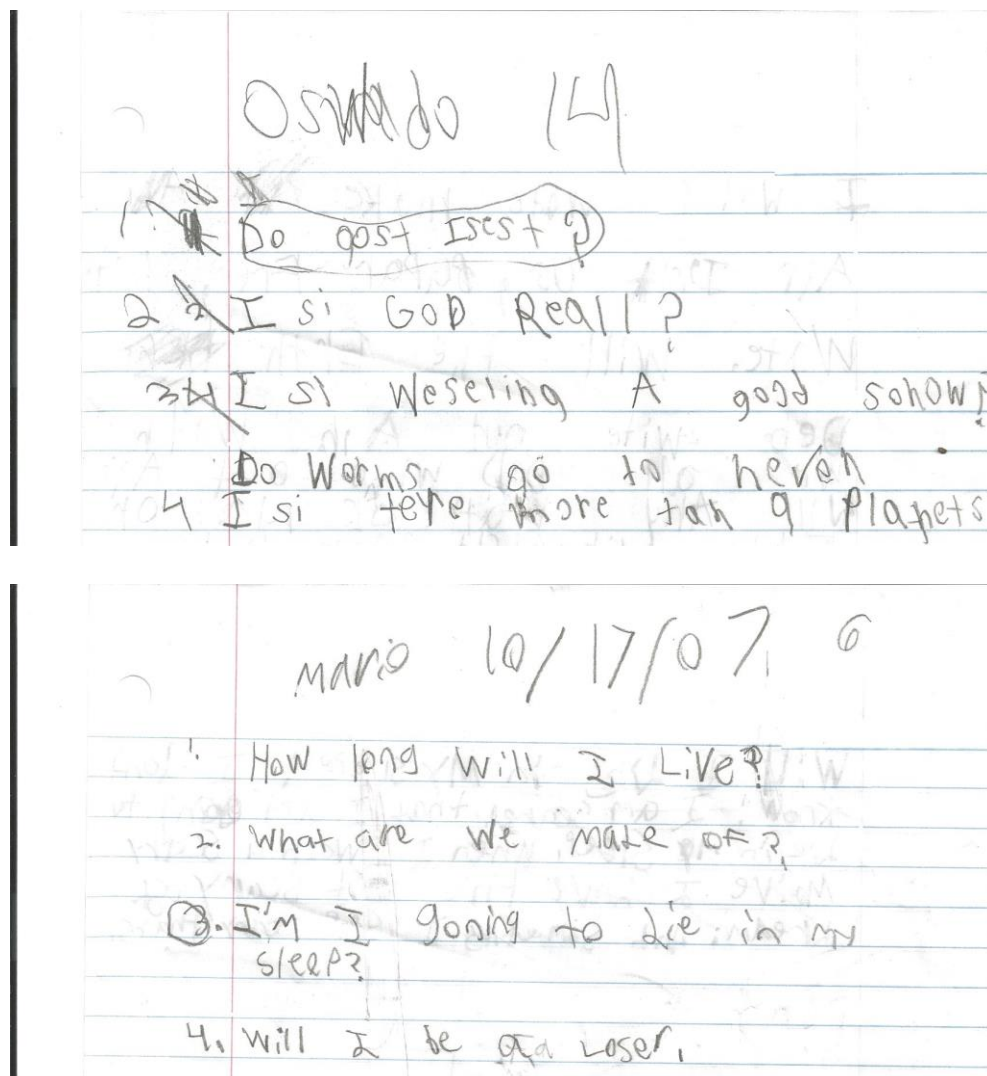 Oswaldo 14
1. Do gost Isest?
2 I si GOD Reall?
3 I si Weseling A good sohow?
Do Worms go to heven
4 I si tere more tan 9 Planets
Mario 10/17/07 6
1. How long will I Live?
2. What are We made of?
3. I'm I gooing to die in my
sleep?
4. Will I be a Loser.